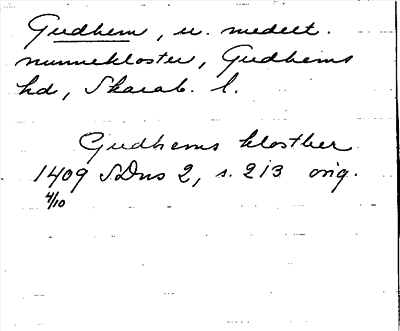 Gudhem, u. medelt.
nunnekloster, Gudhems
hd, Skarab. l.
Gudhems kloster
1409 SDns 2, s. 213 orig.
4/10